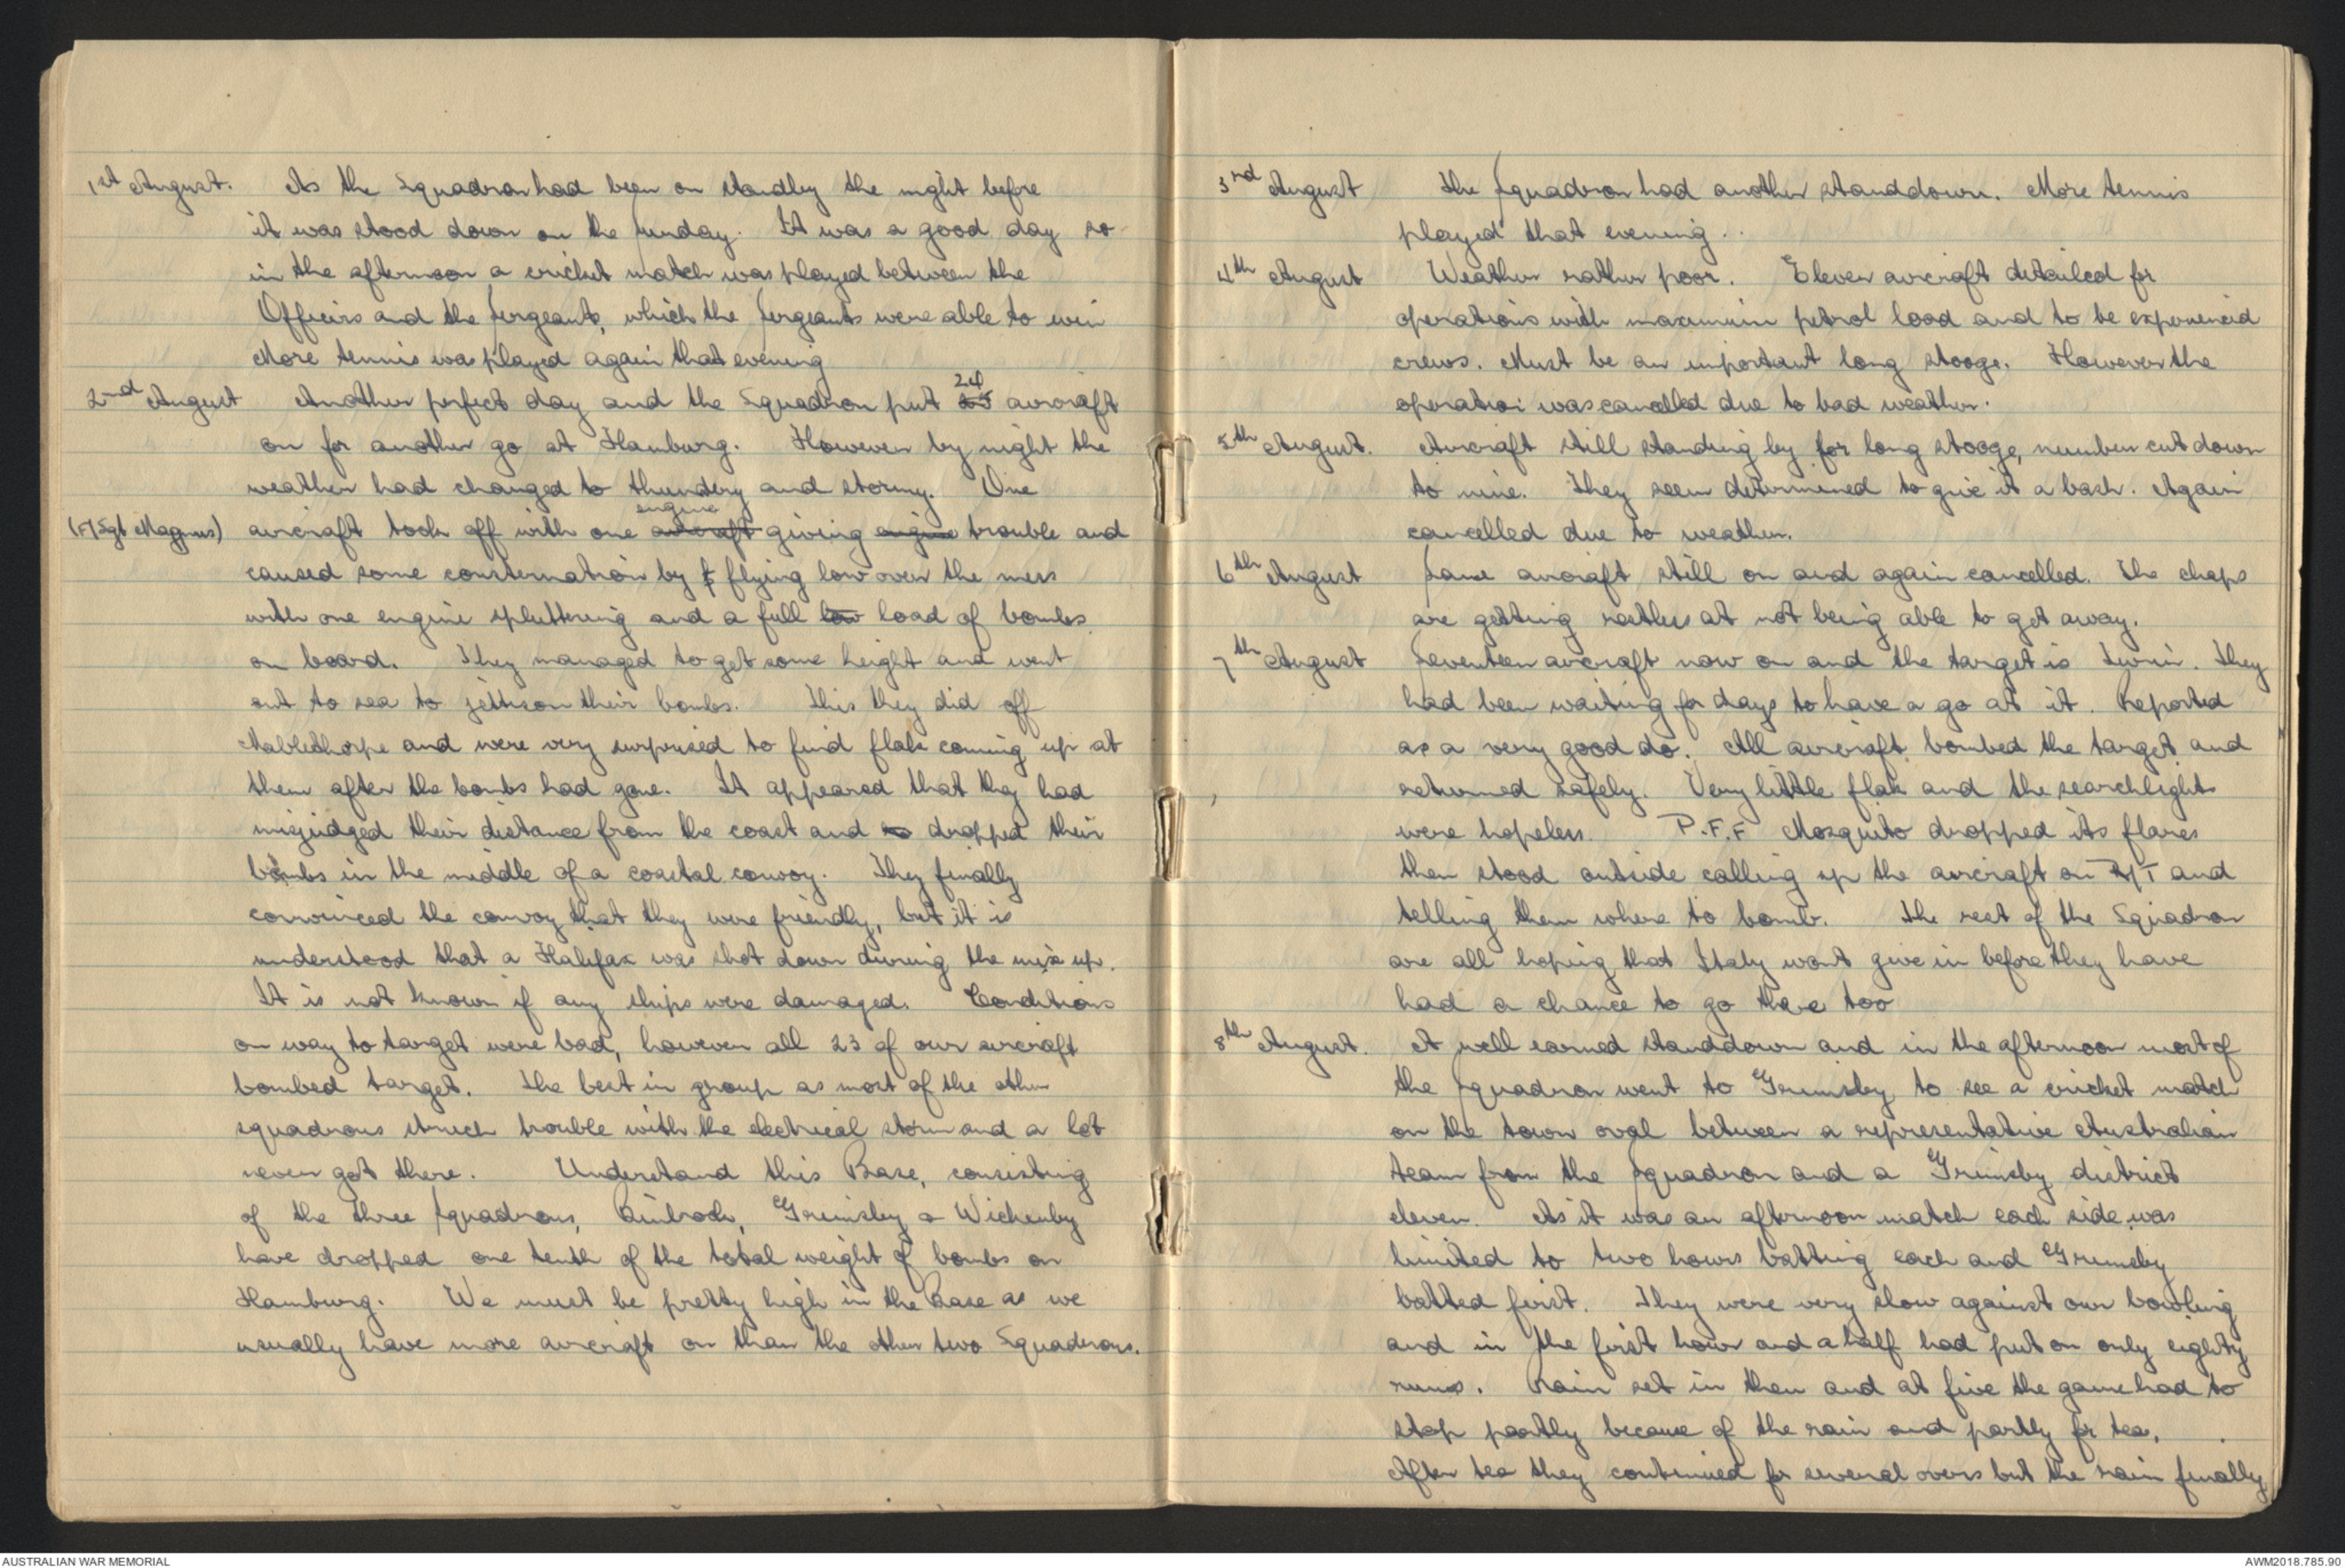 1st August. As the Squadron had been on standby the night before
it was stood down on the Sunday. It was a good day so
in the afternoon a cricket match was played between the
Officers and the Sergeants, which the Sergeants were able to win
More tennis was played again that evening
2nd August Another perfect day and the Squadron put 24 aircraft
on for another go at Hamburg. However by night the
weather had changed to thundery and stormy. One
(F/Sgt Magnus) aircraft took off with one engine aircraft giving engine trouble and
caused some consternation by flying low over the mess
with one engine spluttering and a full low load of bombs
on board. They managed to get some height and went
out to sea to jettison their bombs. This they did off
Mablethorpe and were very surprised to find flak coming up at
them after the bombs had gone. It appeared that they had
misjudged their distance from the coast and so dropped their
bombs in the middle of a coastal convoy. They finally
convinced the convoy that they were friendly, but it is
understood that a Halifax was shot down during the mix up.
It is not known if any ships were damaged. Conditions
on way to target were bad, however all 23 of our aircraft
bombed target. The best in group as most of the other
squadrons struck trouble with the electrical storm and a lot
never got there. Understand this Base, consisting
of the three Squadrons, Binbrook, Grimsby & Wickenby
have dropped one tenth of the total weight of bombs on
Hamburg. We must be pretty high in the Base as we
usually have more aircraft on than the other two Squadrons.
3rd August The Squadron had another standdown. More tennis
played that evening.
4th August Weather rather poor. Eleven aircraft detailed for
operations with maximum petrol load and to be experienced
crews. Must be an important long stooge. However the
operation was cancelled due to bad weather.
5th August. Aircraft still standing by for long stooge, number cut down
to nine. They seem determined to give it a bash. Again
cancelled due to weather.
6th August Same aircraft still on and again cancelled. The chaps
are getting restless at not being able to get away.
7th August Seventeen aircraft now on and the target is Turin. They
had been waiting for days to have a go at it. Reported
as a very good do. All aircraft bombed the target and
returned safely. Very little flak and the searchlights
were hopeless. P.F.F Mosquito dropped its flares
then stood outside calling up the aircraft on R/T and
telling them where to bomb. The rest of the Squadron
are all hoping that Italy wont give in before they have
had a chance to go there too
8th August. A well earned standdown and in the afternoon most of
the Squadron went to Grimsby to see a cricket match
on the town oval between a representative Australian
team from the Squadron and a Grimsby district
eleven. As it was an afternoon match each side was
limited to two hours batting each and Grimsby
batted first. They were very slow against our bowling
and in the first hour and a half had put on only eighty
runs. Rain set in then and at five the game had to
stop partly because of the rain and partly for tea.
After tea they continued for several overs but the rain finally
AUSTRALIAN WAR MEMORIAL
AWM2018.785.90